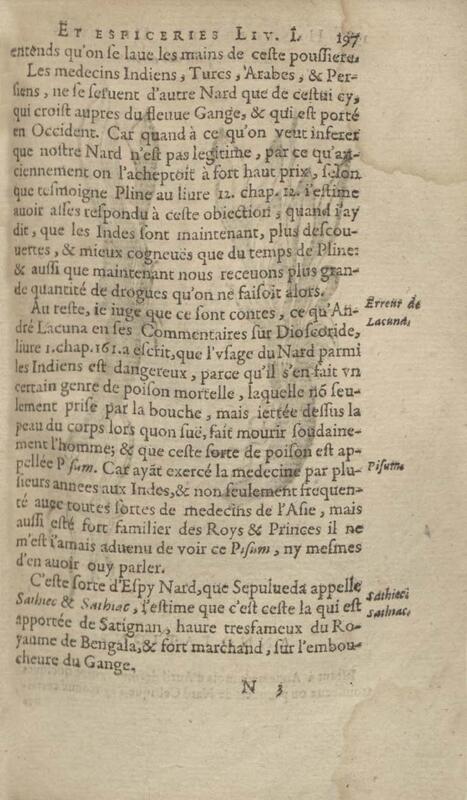 ET ESPICERIES LIV. I. 197
entends qu'on se laue les mains de ceste poussiere.
Les medecins Indiens, Turcs, Arabes, & Per-
siens, ne se seruent d'autre Nard que de cestui cy,
qui croist aupres du fleuue Gange, & qui est porté
en Occident. Car quand à ce qu'on veut inferer
que nostre Nard n'est pas legitime, par ce qu'an-
ciennement on l'acheptoit à fort haut prix, selon
que tesmoigne Pline au liure 12. chap. 12. i'estime
auoir asses respondu à ceste obiection, quand i'ay
dit, que les Indes sont maintenant, plus descou-
uertes, & mieux cogneuës que du temps de Pline:
& aussi que maintenant nous receuons plus gran-
de quantité de drogues qu'on ne faisoit alors.
Au reste, ie iuge que ce sont contes, ce qu'An-
dré Lacuna en ses Commentaires sur Dioscoride,
liure 1. chap. 161. a escrit, que l'vsage du Nard parmi
les Indiens est dangereux, parce qu'il s'en fait vn
certain genre de poison mortelle, laquelle nõ seu-
lement prise par la bouche, mais iettée dessus la
peau du corps lors quon suë, fait mourir soudaine-
ment l'homme; & que ceste sorte de poison est ap-
pellée Pisum. Car ayãt exercé la medecine par plu-
sieurs annees aux Indes, & non seulement frequen-
té auec toutes sortes de medecins de l'Asie, mais
aussi esté fort familier des Roys & Princes il ne
m'est iamais aduenu de voir ce Pisum, ny mesmes
d'en auoir ouy parler.
C'este sorte d'Espy Nard, que Sepulueda appelle
Sathiec & Sathiac, i'estime que c'est ceste la qui est
apportée de Satignan, haure tresfameux du Ro-
yaume de Bengala, & fort marchand, sur l'embou-
cheure du Gange.
N 3
Erreur de
Lacuna.
Pisum.
Sathiec
Sathiac.